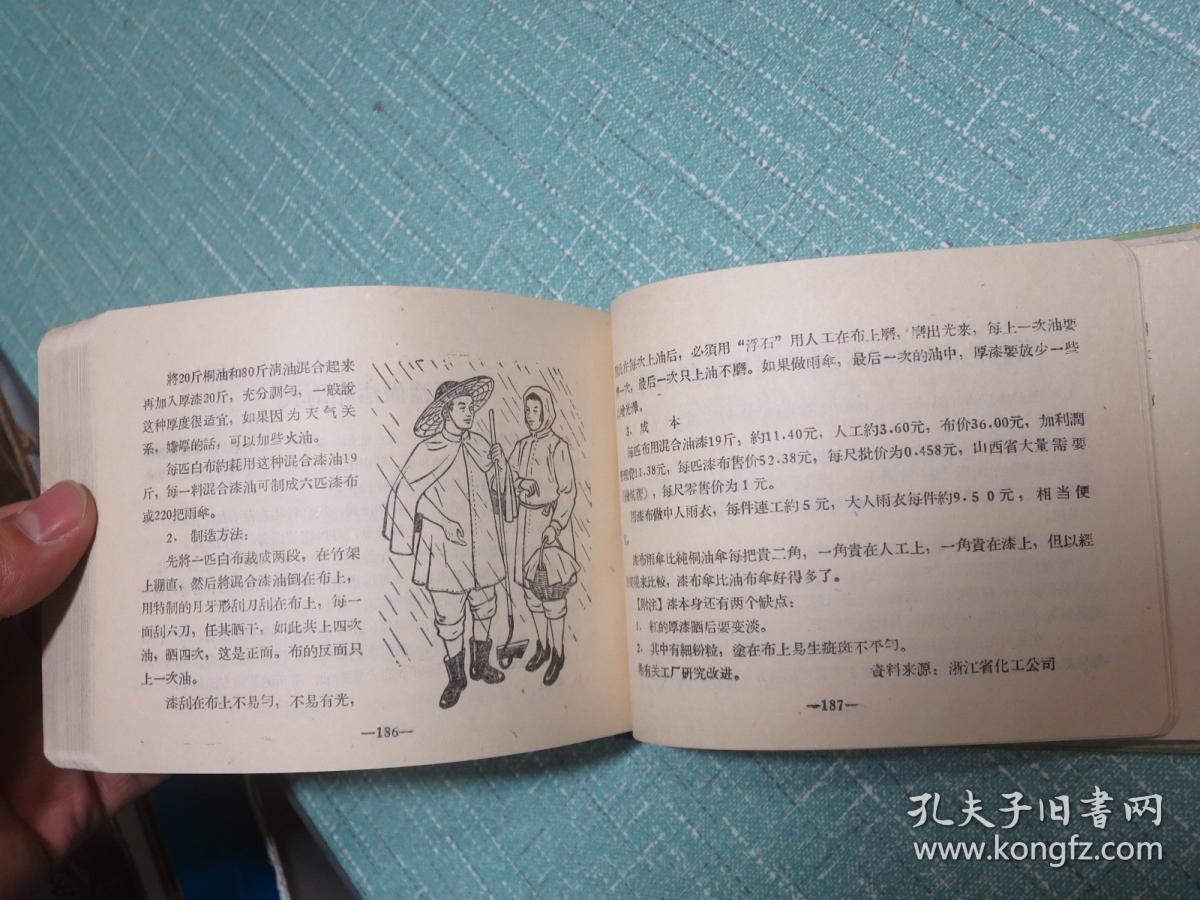 將20斤桐油和80斤清油混合起来
再加入厚漆20斤，充分調勻，一般說
这种厚度很适宜，如果因为天气关
系，嫌厚的話，可以加些火油。
每匹白布約耗用这种混合漆油19
斤，每一料混合漆油可制成六匹漆布
或220把雨傘。
2．制造方法：
先將一匹白布裁成两段，在竹架
上綳直，然后將混合漆油倒在布上，
用特制的月牙形刮刀刮在布上，每一
面刮六刀，任其晒干，如此共上四次
油，晒四次，这是正面。布的反面只
上一次油。
漆刮在布上不易勻，不易有光，
—186—
在每次上油后，必須用“浮石”用人工在布上磨，磨出光来，每上一次油要
一次，最后一次只上油不磨。如果做雨傘，最后一次的油中，厚漆要放少一些
光澤。
3．成本
每匹布用混合油漆19斤，約11.40元，人工約3.60元，布价36.00元，加利潤
11.38元，每匹漆布售价52.38元，每尺批价为0.458元，山西省大量需要
，每尺零售价为1元。
用漆布做中人雨衣，每件連工約5元，大人雨衣每件約9.50元，相当便
漆布雨傘比純桐油傘每把貴二角，一角貴在人工上，一角貴在漆上，但以經
来比較，漆布傘比油布傘好得多了。
【附注】漆本身还有两个缺点：
1．紅的厚漆晒后要变淡。
2．其中有細粉粒，塗在布上易生疵斑不平勻。
有关工厂研究改进。
資料来源：浙江省化工公司
—187—
孔夫子旧書网
www.kongfz.com